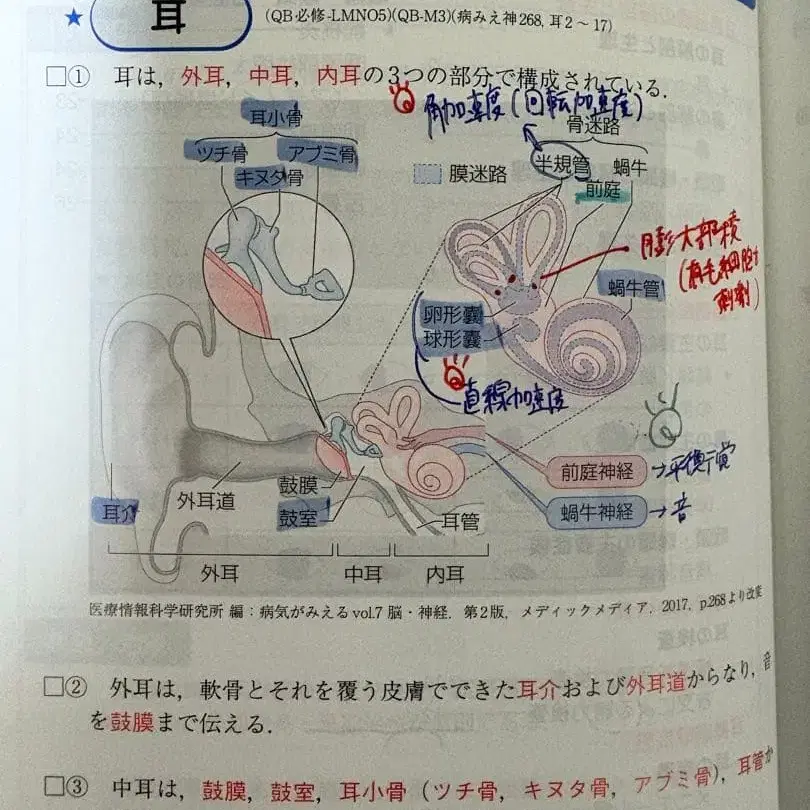 ★ 耳 (QB必修-LMNO5)(QB-M3)(病みえ神268, 耳2〜17)
□① 耳は，外耳，中耳，内耳の3つの部分で構成されている．
角加速度(回転加速度)
耳小骨
骨迷路
ツチ骨 アブミ骨
キヌタ骨
膜迷路
半規管 蝸牛
前庭
膨大部稜
(有毛細胞
刺激)
蝸牛管
卵形嚢
球形嚢
直線加速度
前庭神経 →平衡覚
蝸牛神経 →音
耳介
外耳道
鼓膜
鼓室
耳管
外耳 中耳 内耳
医療情報科学研究所 編：病気がみえる vol.7 脳・神経．第2版，メディックメディア，2017，p.268より改変
□② 外耳は，軟骨とそれを覆う皮膚でできた耳介および外耳道からなり，音
を鼓膜まで伝える．
□③ 中耳は，鼓膜，鼓室，耳小骨（ツチ骨，キヌタ骨，アブミ骨），耳管か